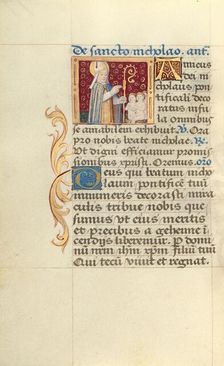 De sancto nicholao. ant.
Amicus
dei ni
cholaus pon
tificali deco
ratus infu
la omnibus
se amabilem exhibuit. V. Ora
pro nobis beate nicholae. Re.
Ut digni efficiamur promis
sionibus xpristi. Oremus. oro
Deus qui beatum nicho
laum pontificem tuum
innumeris decorasti mira
culis tribue nobis que
sumus ut eius meritis
et precibus a gehenne in
cendiis liberemur. Per do
minum nrm ihm xpm filium tuum
Qui tecum vivit et regnat.